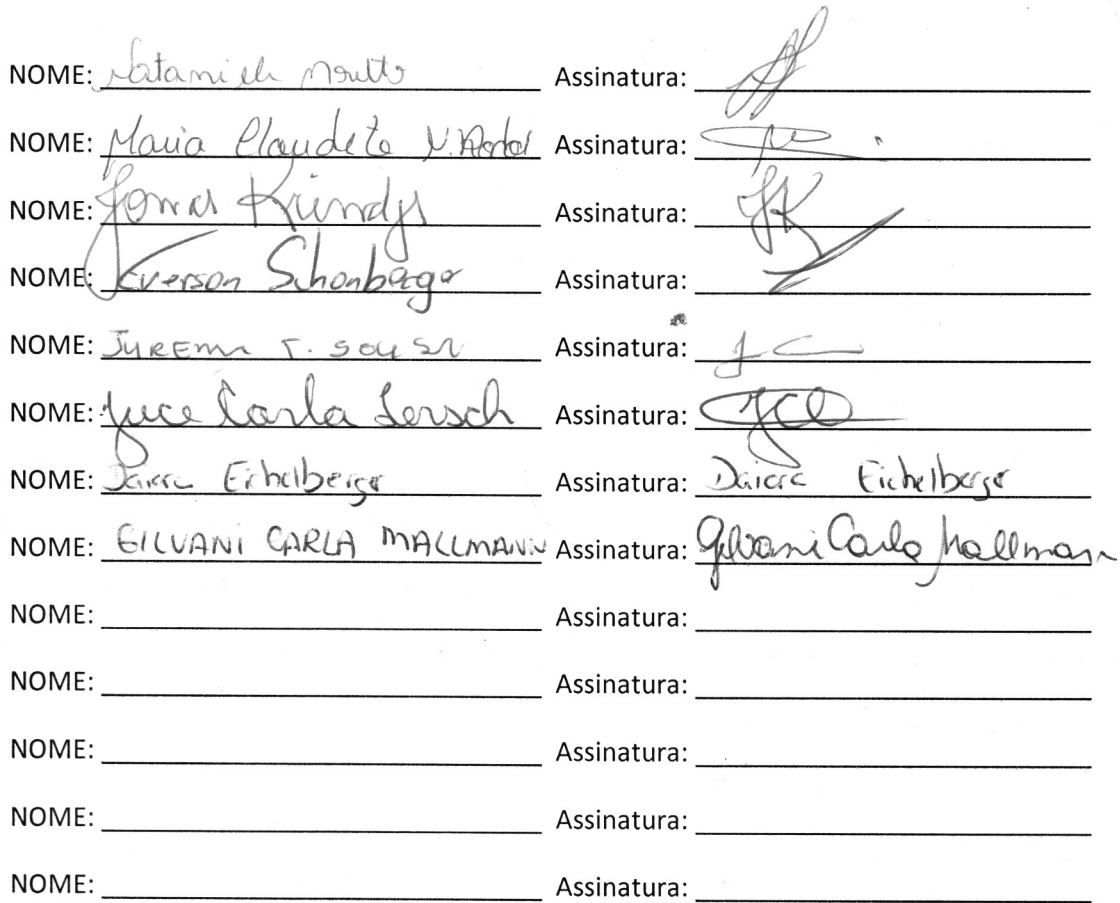 NOME: Assinatura:
NOME: Maria Claudete Assinatura:
NOME: Assinatura: JK
NOME: Everson Schonberger Assinatura:
NOME: JUREMA T. SOUSA Assinatura:
NOME: Juce Carla Lersch Assinatura: JCL
NOME: Daiere Eichelberger Assinatura: Daiere Eichelberger
NOME: GILVANI CARLA MALLMANN Assinatura: Gilvani Carla Mallmann
NOME: Assinatura:
NOME: Assinatura:
NOME: Assinatura:
NOME: Assinatura:
NOME: Assinatura: